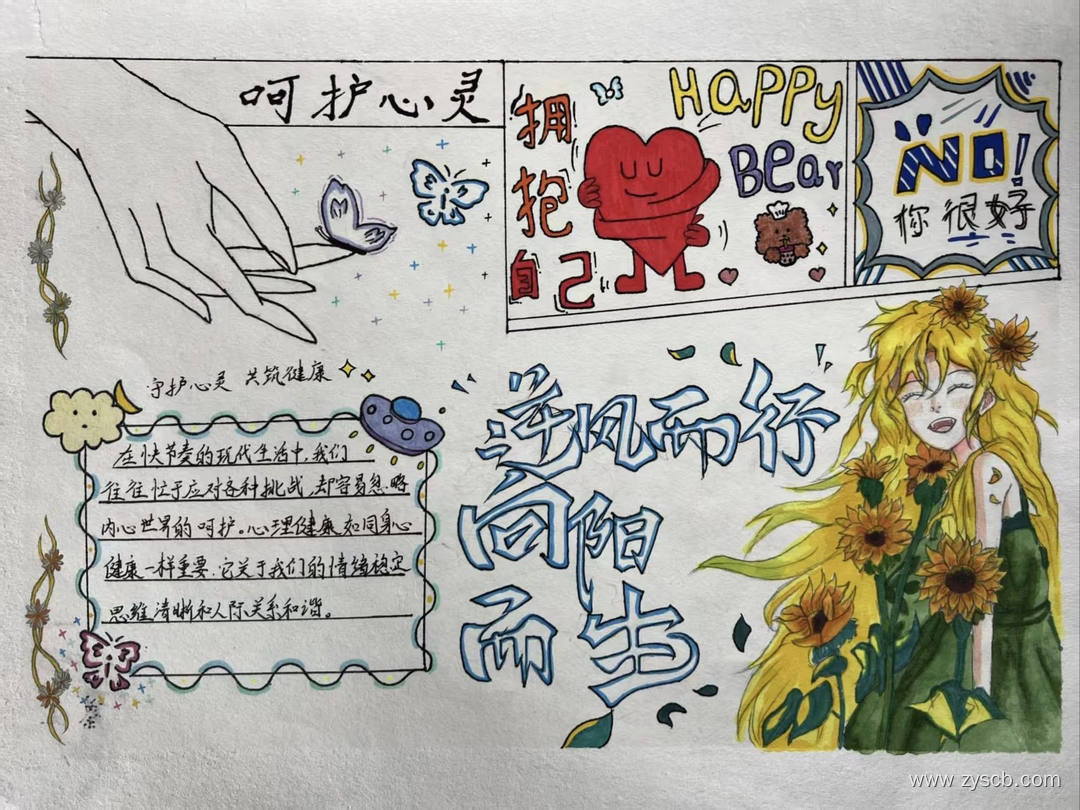 呵护心灵
拥抱自己
HAPPY
Bear
NO!
你很好
守护心灵 共筑健康
在快节奏的现代生活中,我们
往往忙于应对各种挑战,却容易忽略
内心世界的呵护。心理健康如同身心
健康一样重要,它关于我们的情绪稳定
思维清晰和人际关系和谐。
逆风而行
向阳
而生
www.zyscb.com